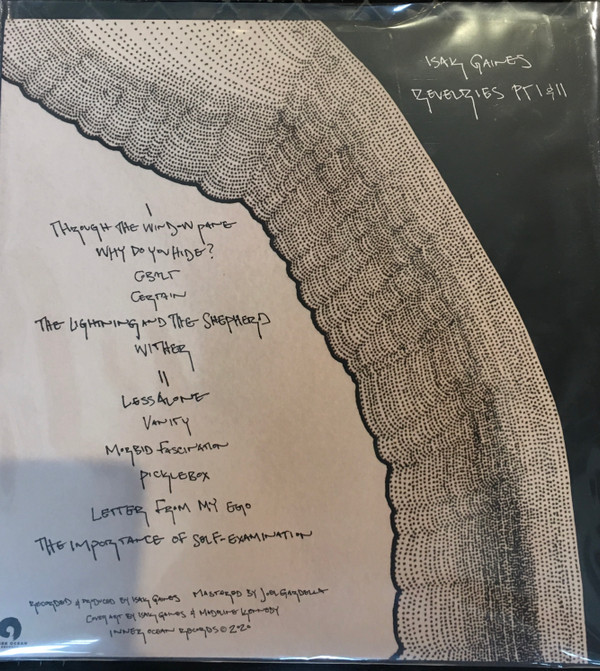 ISAK GAINES
REVELRIES PT I & II
I
THROUGH THE WINDOW PANE
WHY DO YOU HIDE?
GBMLT
CERTAIN
THE LIGHTNING AND THE SHEPHERD
WITHER
II
LESS ALONE
VANITY
MORBID FASCINATION
PICKLEBOX
LETTER FROM MY EGO
THE IMPORTANCE OF SELF-EXAMINATION
RECORDED & PRODUCED BY ISAK GAINES MASTERED BY JOEL
COVER ART BY ISAK GAINES & MADELINE KENNEDY
INNER OCEAN RECORDS